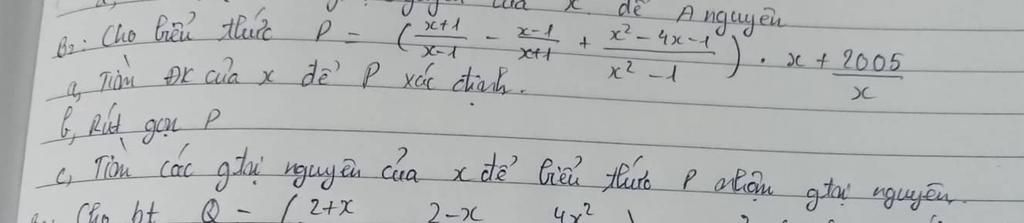 x để A nguyên
B2: Cho biểu thức P = (\frac{x+1}{x-1} - \frac{x-1}{x+1} + \frac{x^2-4x-1}{x^2-1}) . x + \frac{2005}{x}
a, Tìm ĐK của x để P xác định.
b, Rút gọn P
c, Tìm các gtrị nguyên của x để biểu thức P nhận gtrị nguyên.
Cho bt Q = ( 2+x 2-x 4x²